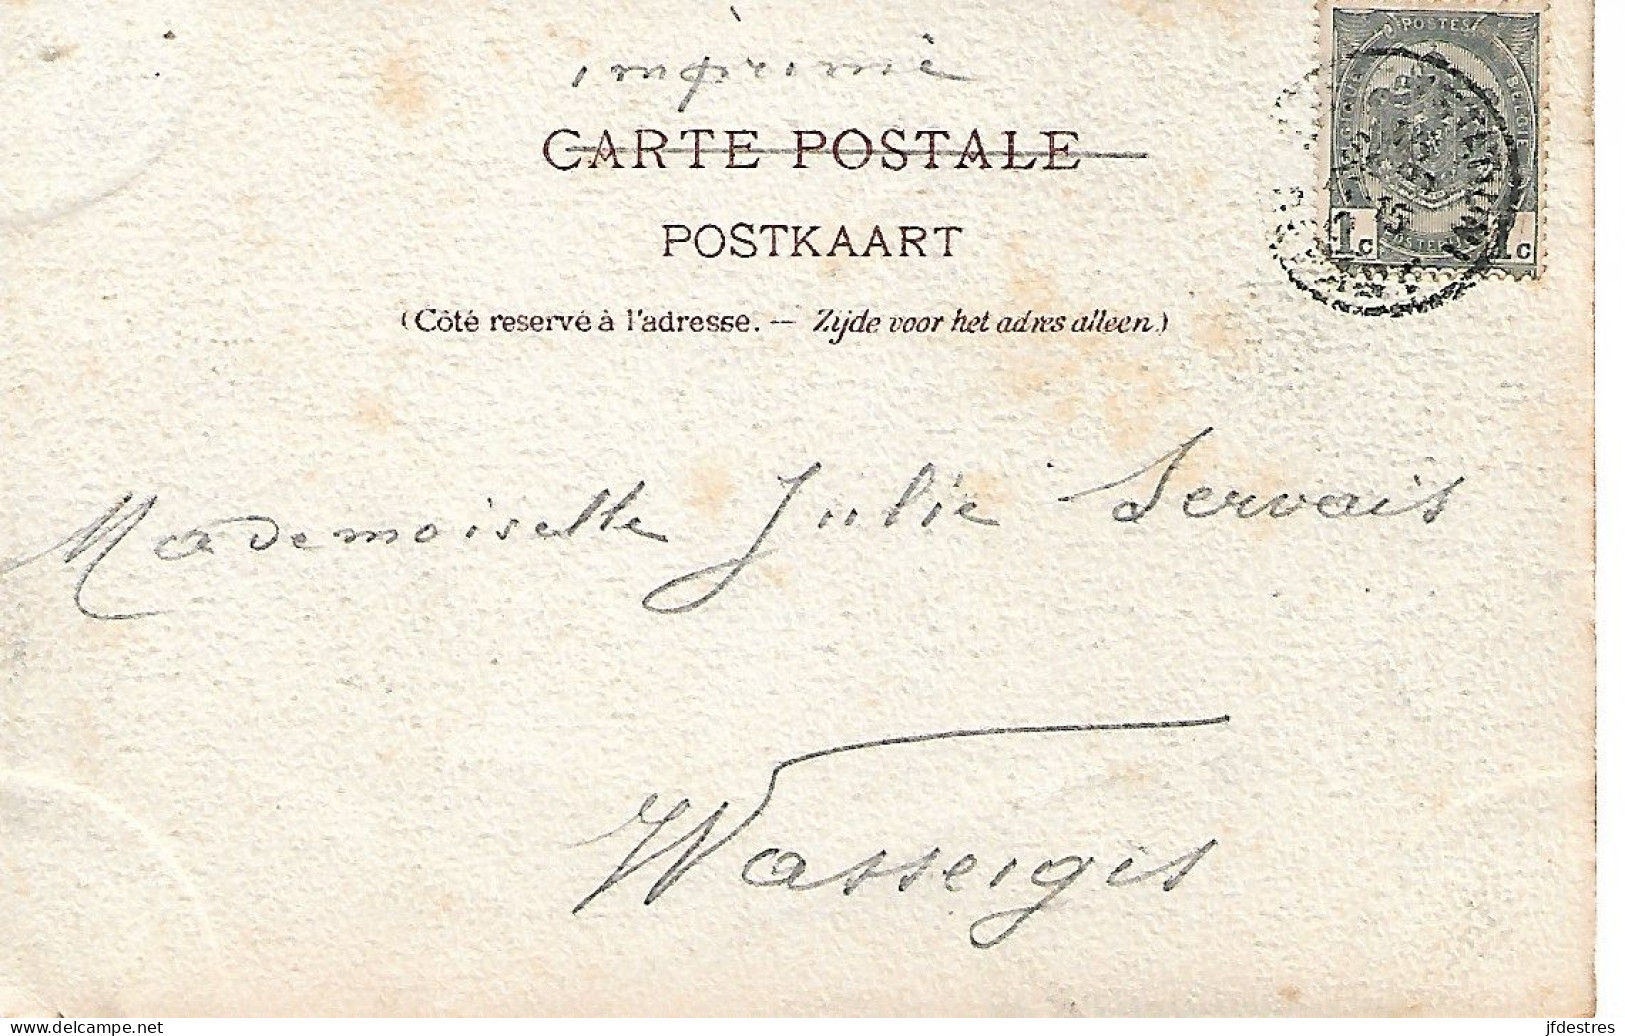 imprimé
POSTES
BELGIQUE
BELGIË
1c
1c
CARTE POSTALE
POSTKAART
(Côté reservé à l'adresse. — Zijde voor het adres alleen.)
Mademoiselle Julie Servais
Wasseiges
delcampe.net
jfdestres